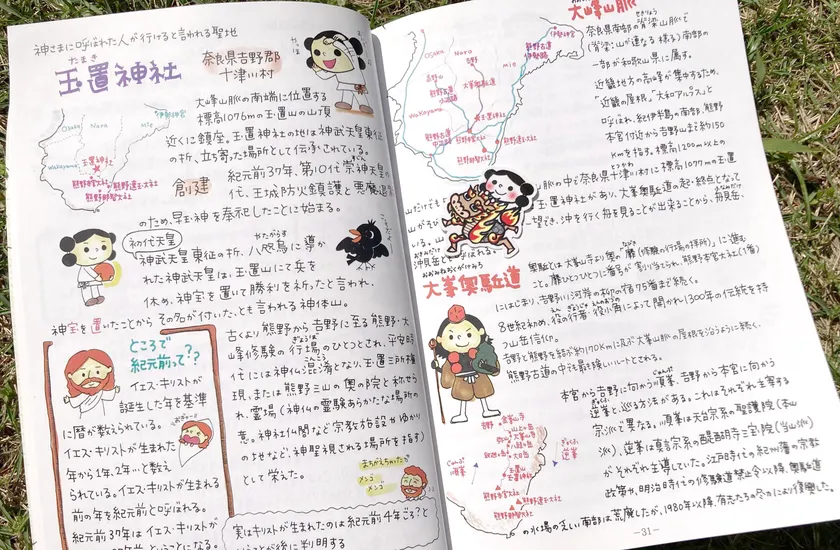 神さまに呼ばれた人が行けると言われる聖地
たまき
玉置神社
奈良県吉野郡
十津川村
大峰山脈の南端に位置する
標高1076mの玉置山の山頂
近くに鎮座。玉置神社の地は神武天皇東征
の折、立ち寄った場所として伝承されている。
Osaka Nara Mie 伊勢神宮
Wakayama 玉置神社
熊野本宮大社 熊野速玉大社
熊野那智大社
創建
紀元前37年、第10代崇神天皇の
代、王城防火鎮護と悪魔退
のため、早玉神を奉祀したことに始まる。
初代天皇
神武天皇東征の折、八咫烏に導か
れた神武天皇は、玉置山にて兵を
休め、神宝を置いて勝利を祈ったと言われ、
神宝を置いたことからその名が付いた、とも言われる神体山。
ところで
紀元前って??
イエス・キリストが
誕生した年を基準
に暦が数えられている。
イエス・キリストが生まれた
年から1年、2年…と数え
られている。イエス・キリストが生まれる
前の年を紀元前と呼ばれる。
紀元前37年はイエス・キリストが
古くより熊野から吉野に至る熊野・大
峰修験の行場のひとつとされ、平安時
代には神仏混淆となり、玉置三所権
現、または熊野三山の奥の院と称せら
れ、霊場(神仏の霊験あらかたな場所の
意。神社仏閣など宗教的施設やゆかり
の地など、神聖視される場所を指す)
として栄えた。
まちがえちゃった
メンゴ
メンゴ
実はキリストが生まれたのは紀元前4年ごろ?と
いうことが後に判明する
大峰山脈
奈良県南部の脊梁山脈で
(脊梁:山が連なる様子)南部の
一部が和歌山県に属す。
近畿地方の高峰が集中するため、
「近畿の屋根」「大和アルプス」と
呼ばれ、紀伊半島の南部、熊野
本宮付近から吉野山まで約150
kmを指す。標高1200m以上の
山脈の中で奈良十津川村に標高1077mの玉置
玉置神社があり、大峯奥駈道の起・終点となって
望でき、沖を行く舟を見ることが出来ることから、舟見岳、
沖見岳とも呼ばれる。
おおみねおくがけみち
大峯奥駈道
奥駈とは、大峯山寺より奥の靡(修験の行場や拝所)に進む
こと。靡ひとつひとつに番号が割り当てられ、熊野本宮大社(1番)
にはじまり、吉野川河岸の柳の宿75番まで続く。
8世紀初め、役の行者・役小角によって開かれ1300年の伝統を持
つ山岳信仰。
吉野と熊野を結ぶ約170kmに及ぶ大峰山脈の屋根を沿うように続く、
熊野古道の中でも最も険しいルートとされる。
本宮から吉野に向かう順峯、吉野から本宮に向かう
逆峯と、巡る方法がある。これはそれぞれ主導する
宗派で異なる。順峯は天台宗系の聖護院(本山
派)、逆峯は真言宗系の醍醐寺三宝院(当山派)
がそれぞれ主導していた。江戸時代の紀州藩の宗教
政策や、明治時代の修験道禁止令以降、奥駈道
の水場のえしい南部は荒廃したが、1980年以降、有志たちの尽力により復興した。
じゅんぶ
順峯
ぎゃくぶ
逆峯
-31-